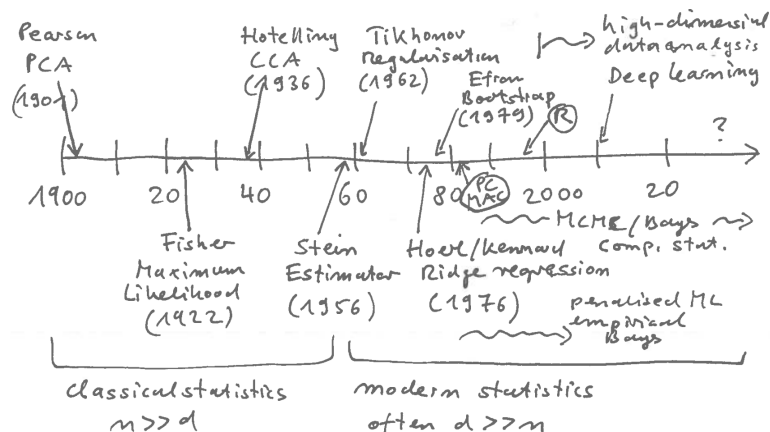 Pearson
PCA
(1901)
Hotelling
CCA
(1936)
Tikhonov
Regularisation
(1962)
Efron
Bootstrap
(1979)
R
high-dimensial
data analysis
Deep learning
?
1900
20
40
60
80
2000
20
PC
MAC
MCMC/Bays
Comp. stat.
Fisher
Maximum
Likelihood
(1922)
Stein
Estimator
(1956)
Hoerl/Kennard
Ridge regression
(1976)
penalised ML
empirical
Bays
classical statistics
n>>d
modern statistics
often d>>n